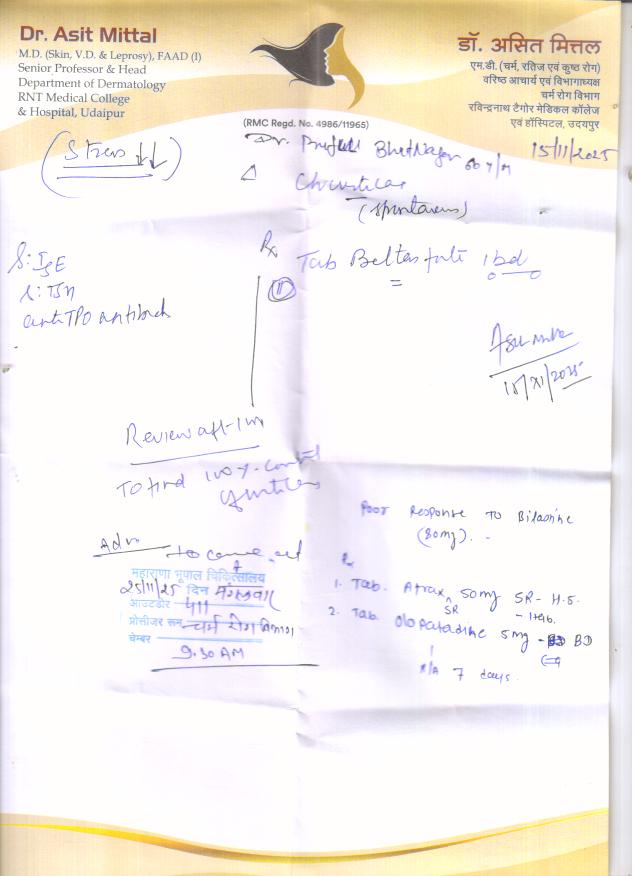 Dr. Asit Mittal
M.D. (Skin, V.D. & Leprosy), FAAD (I)
Senior Professor & Head
Department of Dermatology
RNT Medical College
& Hospital, Udaipur
डॉ. असित मित्तल
एम.डी. (चर्म, रतिज एवं कुष्ठ रोग)
वरिष्ठ आचार्य एवं विभागाध्यक्ष
चर्म रोग विभाग
रविन्द्रनाथ टैगोर मेडिकल कॉलेज
एवं हॉस्पिटल, उदयपुर
(RMC Regd. No. 4986/11965)
(Stress ↓↓)
Dr. Bhatnagar 60 y/M
15/11/2025
Δ
(spontaneous)
S. IgE
S. TSH
anti TPO
Rx
Tab 1 bd
15/XI/2025
Review aft-
To find 100%
Adv
to come
महाराणा भूपाल चिकित्सालय
25/11/25 दिन मंगलवार
आउटडोर
प्रोसीजर रूम चर्म रोग विभाग
चेम्बर
9.30 AM
Poor Response to Bilastine
(80mg).
Rx
1. Tab. Atrax 50mg SR- H.S.
SR - 1 tab.
2. Tab Olopatadine 5mg - BD
7 days.